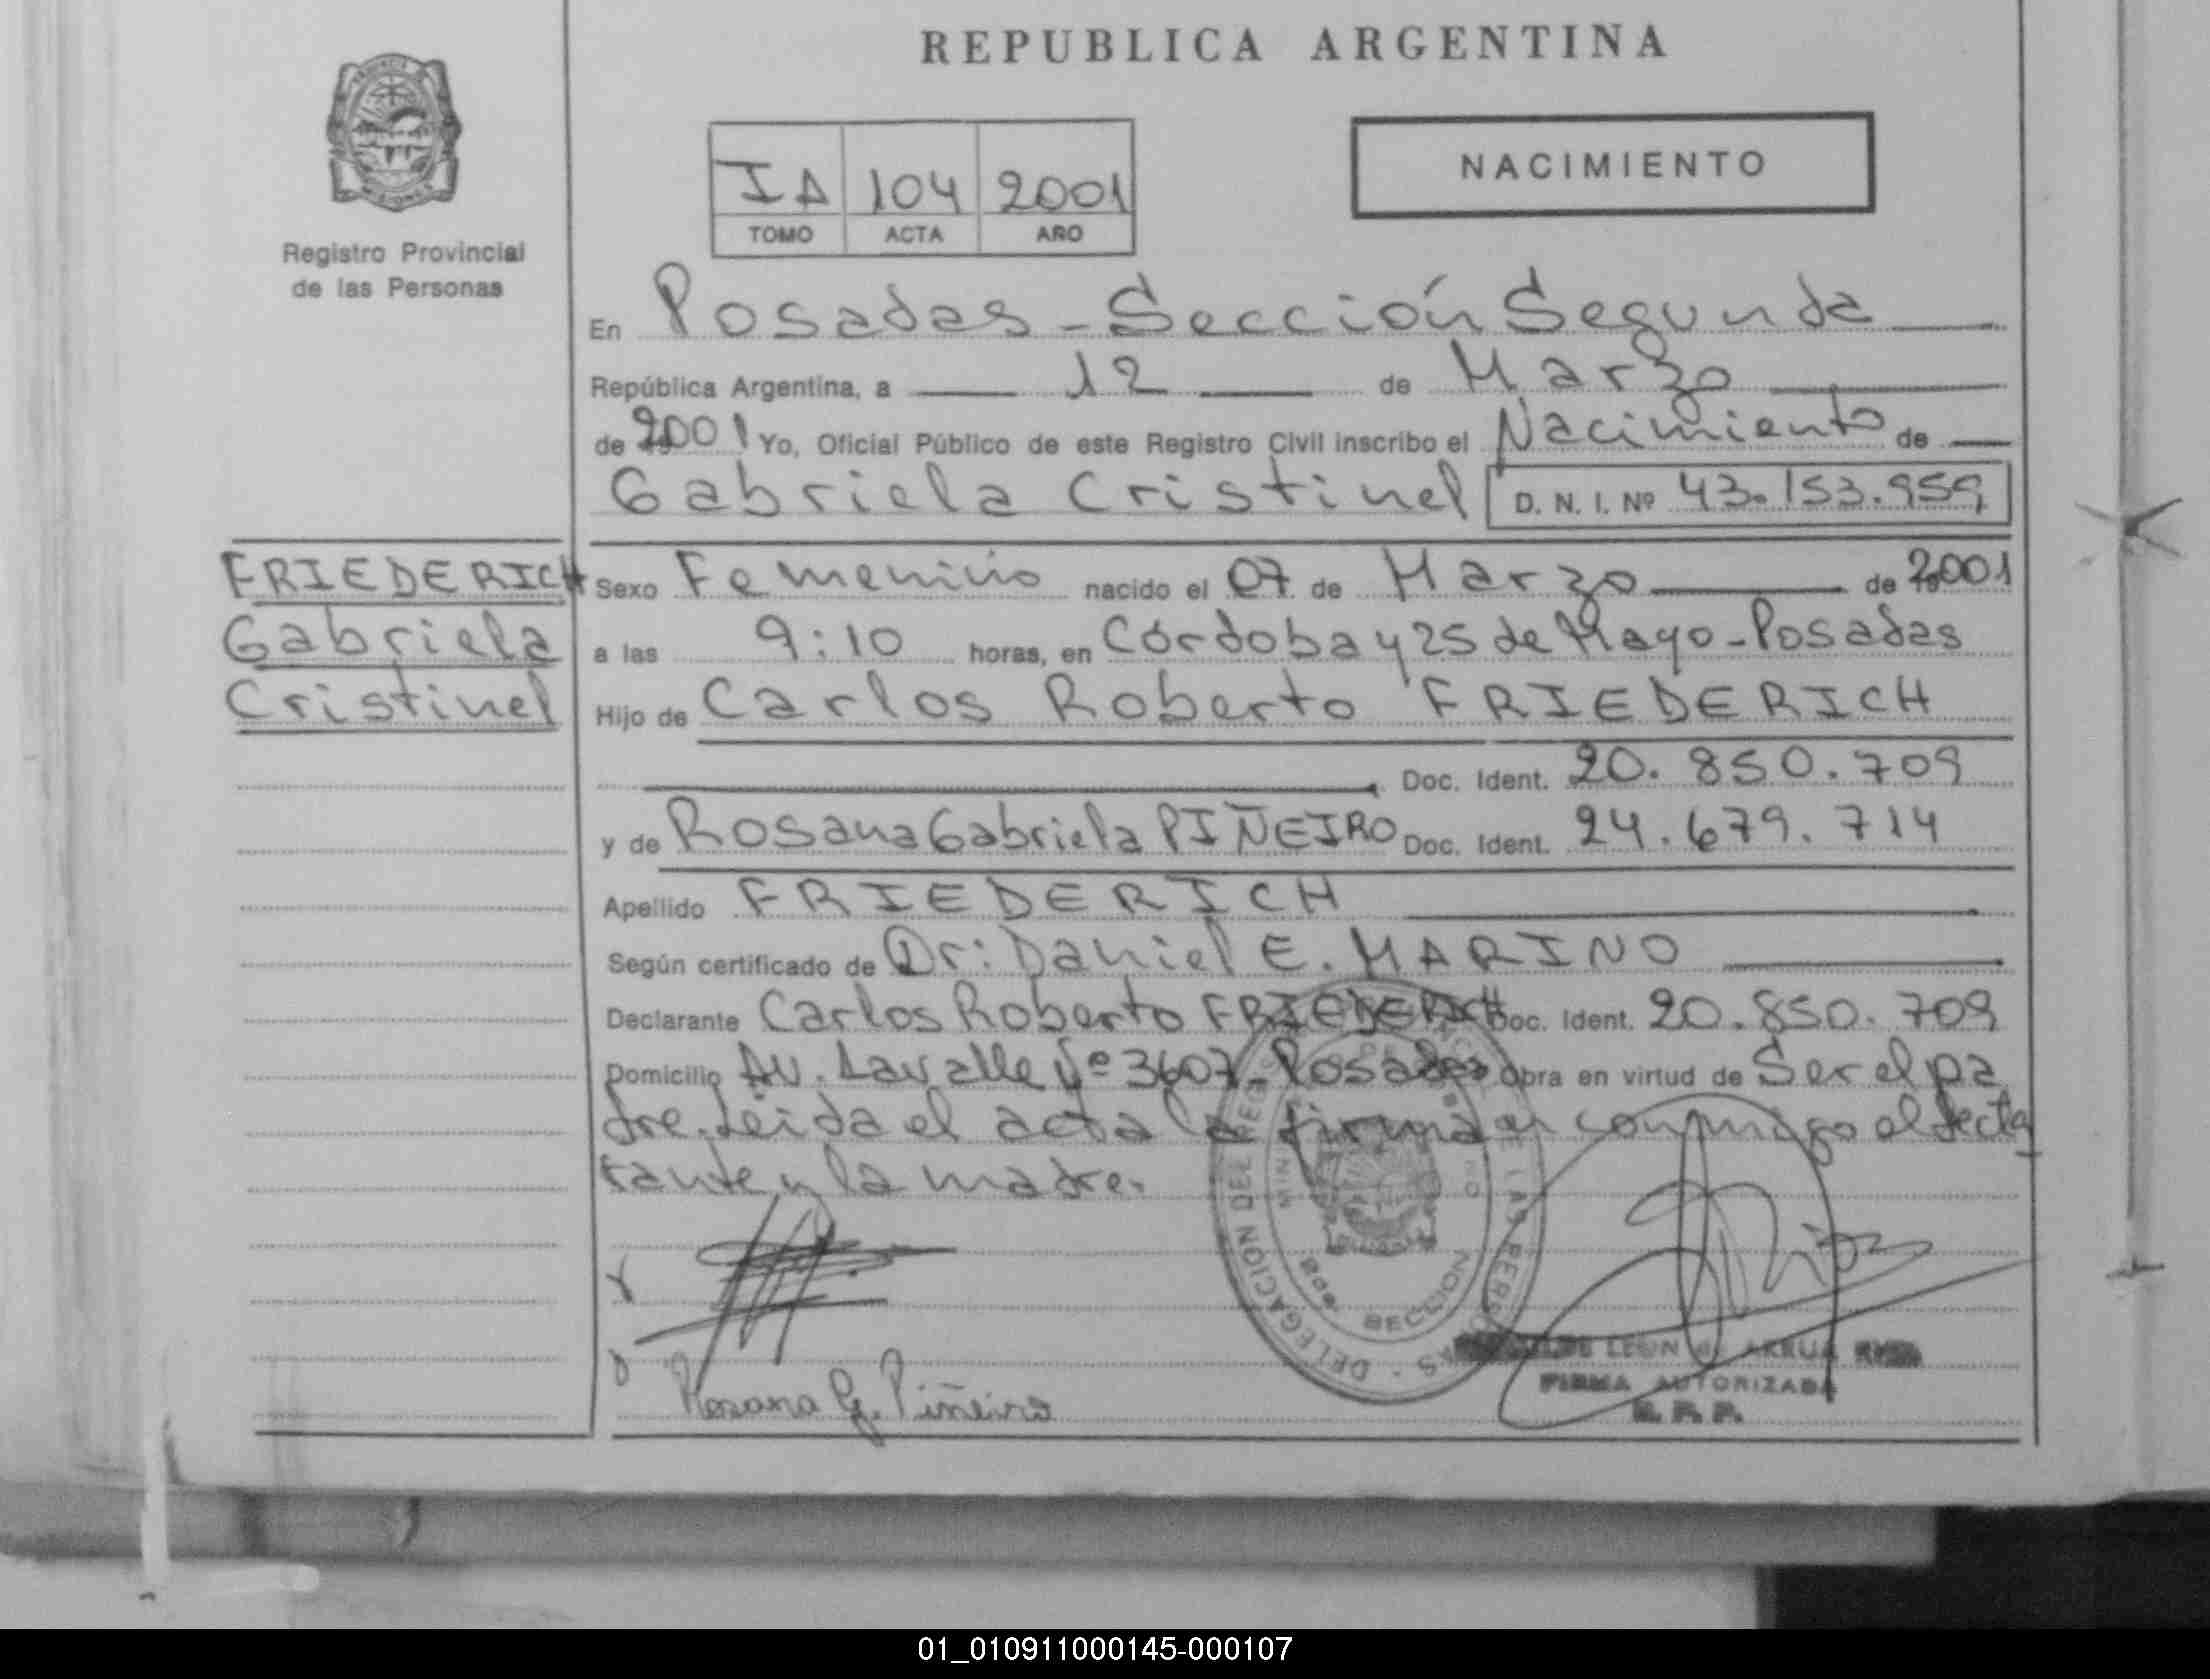 REPUBLICA ARGENTINA
Registro Provincial
de las Personas
IA 104 2001
TOMO ACTA AÑO
NACIMIENTO
En Posadas - Sección Segunda
República Argentina, a 12 de Marzo
de 2001 Yo, Oficial Público de este Registro Civil inscribo el Nacimiento de
Gabriela Cristinel D. N. I. Nº 43.153.959
FRIEDERICH
Gabriela
Cristinel
Sexo Femenino nacido el 07 de Marzo de 2001
a las 9:10 horas, en Córdoba y 25 de Mayo - Posadas
Hijo de Carlos Roberto FRIEDERICH
Doc. Ident. 20.850.709
y de Rosana Gabriela PIÑEIRO Doc. Ident. 24.679.714
Apellido FRIEDERICH
Según certificado de Dr: Daniel E. MARINO
Declarante Carlos Roberto FRIEDERICH Doc. Ident. 20.850.709
Domicilio Av. Lavalle Nº 3607 - Posadas obra en virtud de Ser el pa
dre. Leida el acta la firman conmigo el decla
rante y la madre.
DELEGACION DEL REGISTRO DE LAS PERSONAS
2da. SECCION
Rosana G. Piñeiro
LEON de ARRUA
FIRMA AUTORIZADA
R. P. P.
01_010911000145-000107